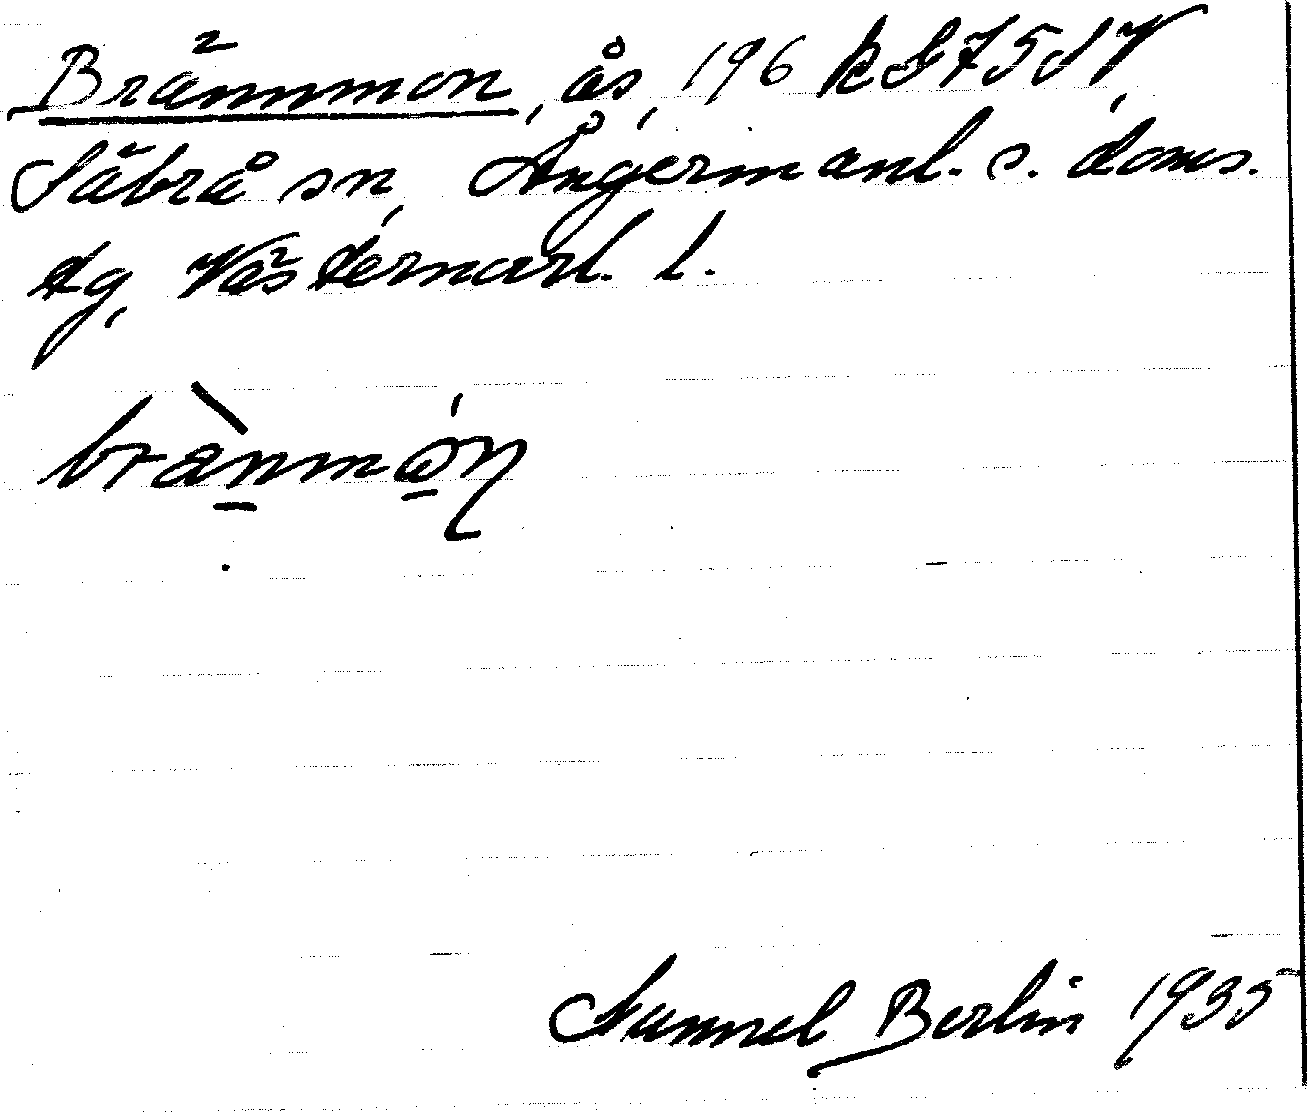 Brännmon, ås, 196 k S75SV,
Säbrå sn, Ångermanl. s. doms.
tg, Västernorrl. l.
brànmo̱n
Samuel Berlin 1935